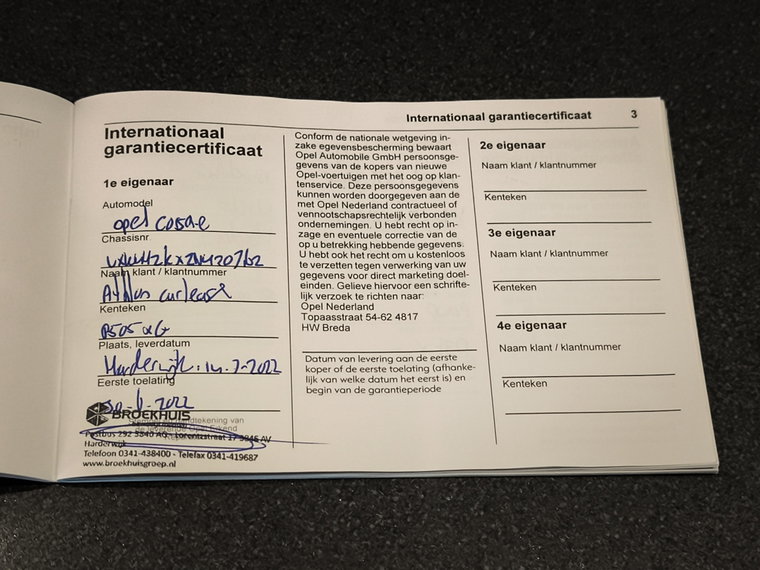 Internationaal garantiecertificaat 3
Internationaal
garantiecertificaat
1e eigenaar
Automodel
opel corsa-e
Chassisnr
Naam klant / klantnummer
Kenteken
Plaats, leverdatum
Harderwijk. 14-7-2022
Eerste toelating
30-6-2022
BROEKHUIS
Postbus 292 3840 AG, Lorentzstraat 17 3846 AV
Harderwijk
Telefoon 0341-438400 - Telefax 0341-419687
www.broekhuisgroep.nl
Conform de nationale wetgeving in-
zake egevensbescherming bewaart
Opel Automobile GmbH persoonsge-
gevens van de kopers van nieuwe
Opel-voertuigen met het oog op klan-
tenservice. Deze persoonsgegevens
kunnen worden doorgegeven aan de
met Opel Nederland contractueel of
vennootschapsrechtelijk verbonden
ondernemingen. U hebt recht op in-
zage en eventuele correctie van de
op u betrekking hebbende gegevens.
U hebt ook het recht om u kosteloos
te verzetten tegen verwerking van uw
gegevens voor direct marketing doel-
einden. Gelieve hiervoor een schrifte-
lijk verzoek te richten naar:
Opel Nederland
Topaasstraat 54-62 4817
HW Breda
Datum van levering aan de eerste
koper of de eerste toelating (afhanke-
lijk van welke datum het eerst is) en
begin van de garantieperiode
2e eigenaar
Naam klant / klantnummer
Kenteken
3e eigenaar
Naam klant / klantnummer
Kenteken
4e eigenaar
Naam klant / klantnummer
Kenteken